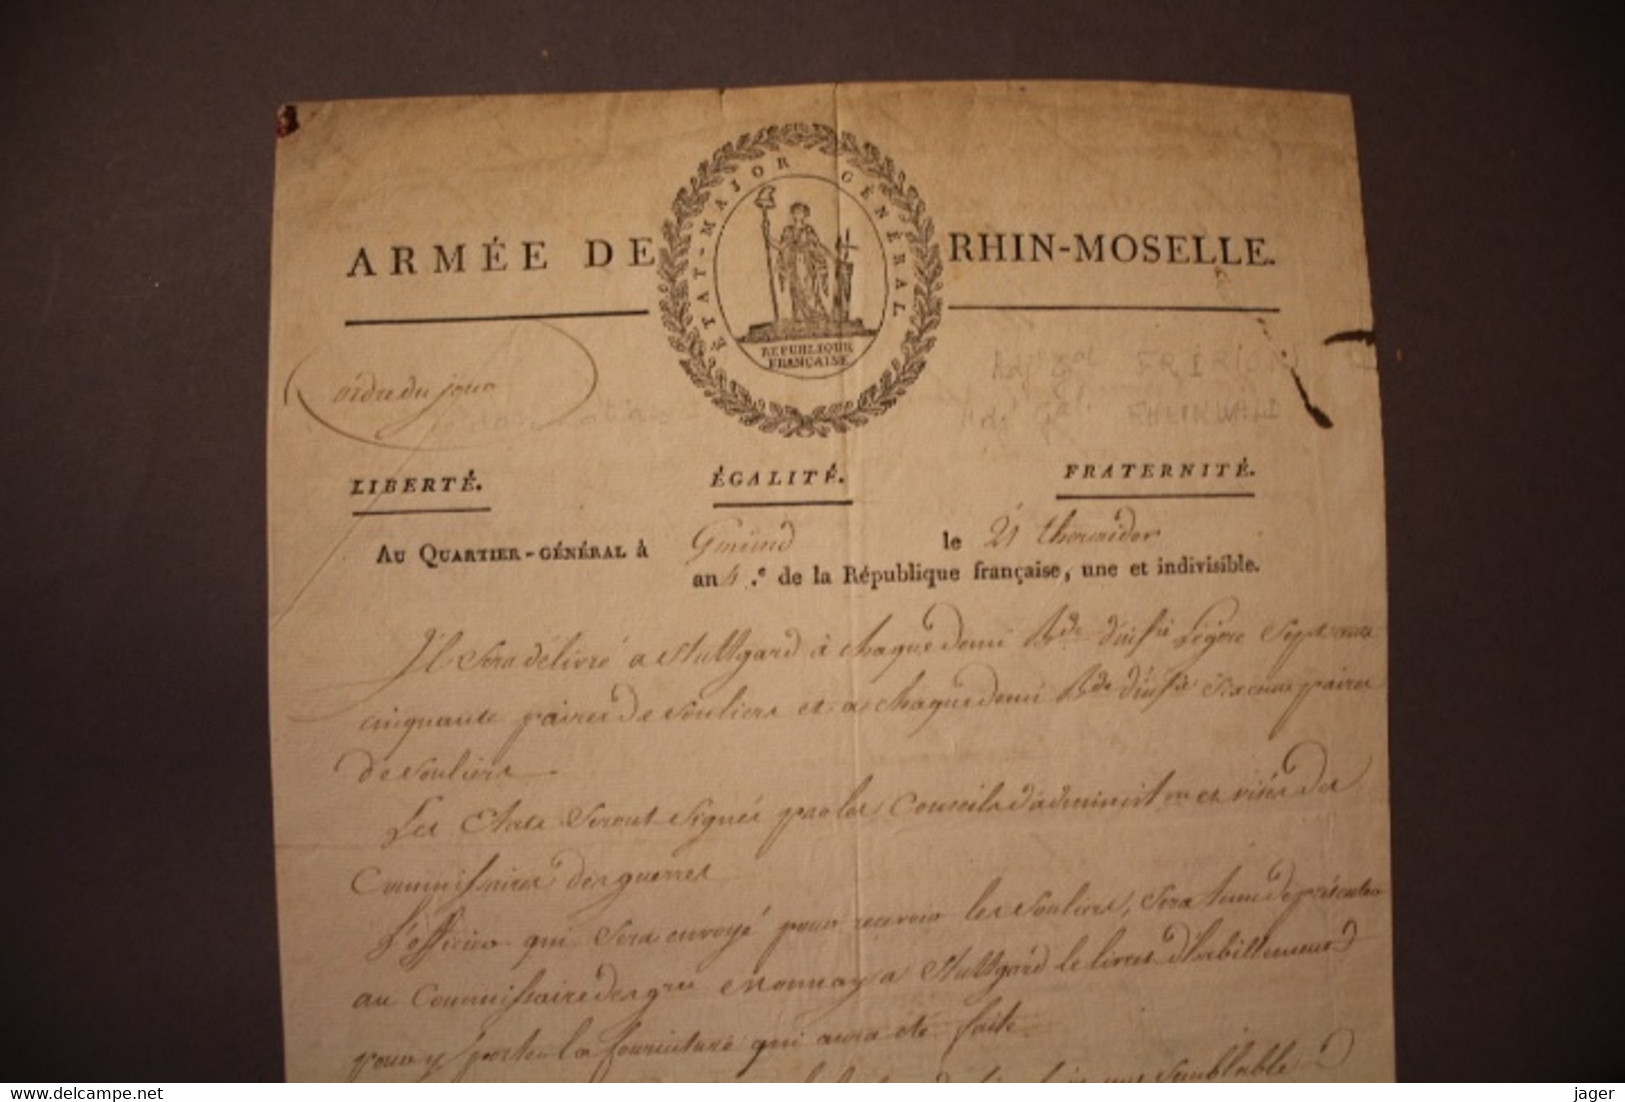 ÉTAT-MAJOR GÉNÉRAL
ARMÉE DE RHIN-MOSELLE.
REPUBLIQUE
FRANÇAISE
ordre du jour
Adj Gal
Adj Gal RHEINWALD
LIBERTÉ. ÉGALITÉ. FRATERNITÉ.
AU QUARTIER-GÉNÉRAL à Gmünd le 21 thermidor
an 4.e de la République française, une et indivisible.
Il Sera délivré a Stuttgard à chaque demi Bde d'infie Légère Sept cent
cinquante paires de Souliers et a chaque demi Bde d'infie Six cens paires
de Souliers
Les Etats Seront Signés par les Conseils d'administon et visés des
Commissaires des guerres
L'officier qui Sera envoyé pour recevoir les Souliers, Sera tenu de présenter
au Commissaire des gres a Stuttgard le livret d'habillement
pour y porter la fourniture qui aura été faite.
une Semblable
www.delcampe.net
jager